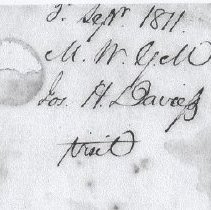 3. Septr 1811.
M. W. G. M
Jos. H. Daviess
visit